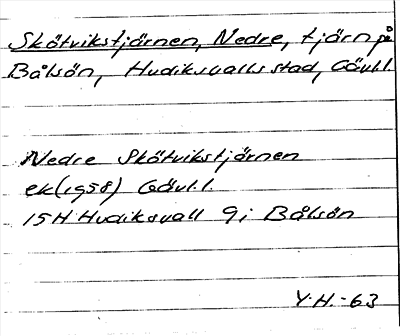 Skötvikstjärnen, Nedre, tjärn på
Bålsön, Hudiksvalls stad, Gävl.l.
Nedre Skötvikstjärnen
ek(1958) Gävl.l.
15H Hudiksvall 9i Bålsön
Y.H.-63